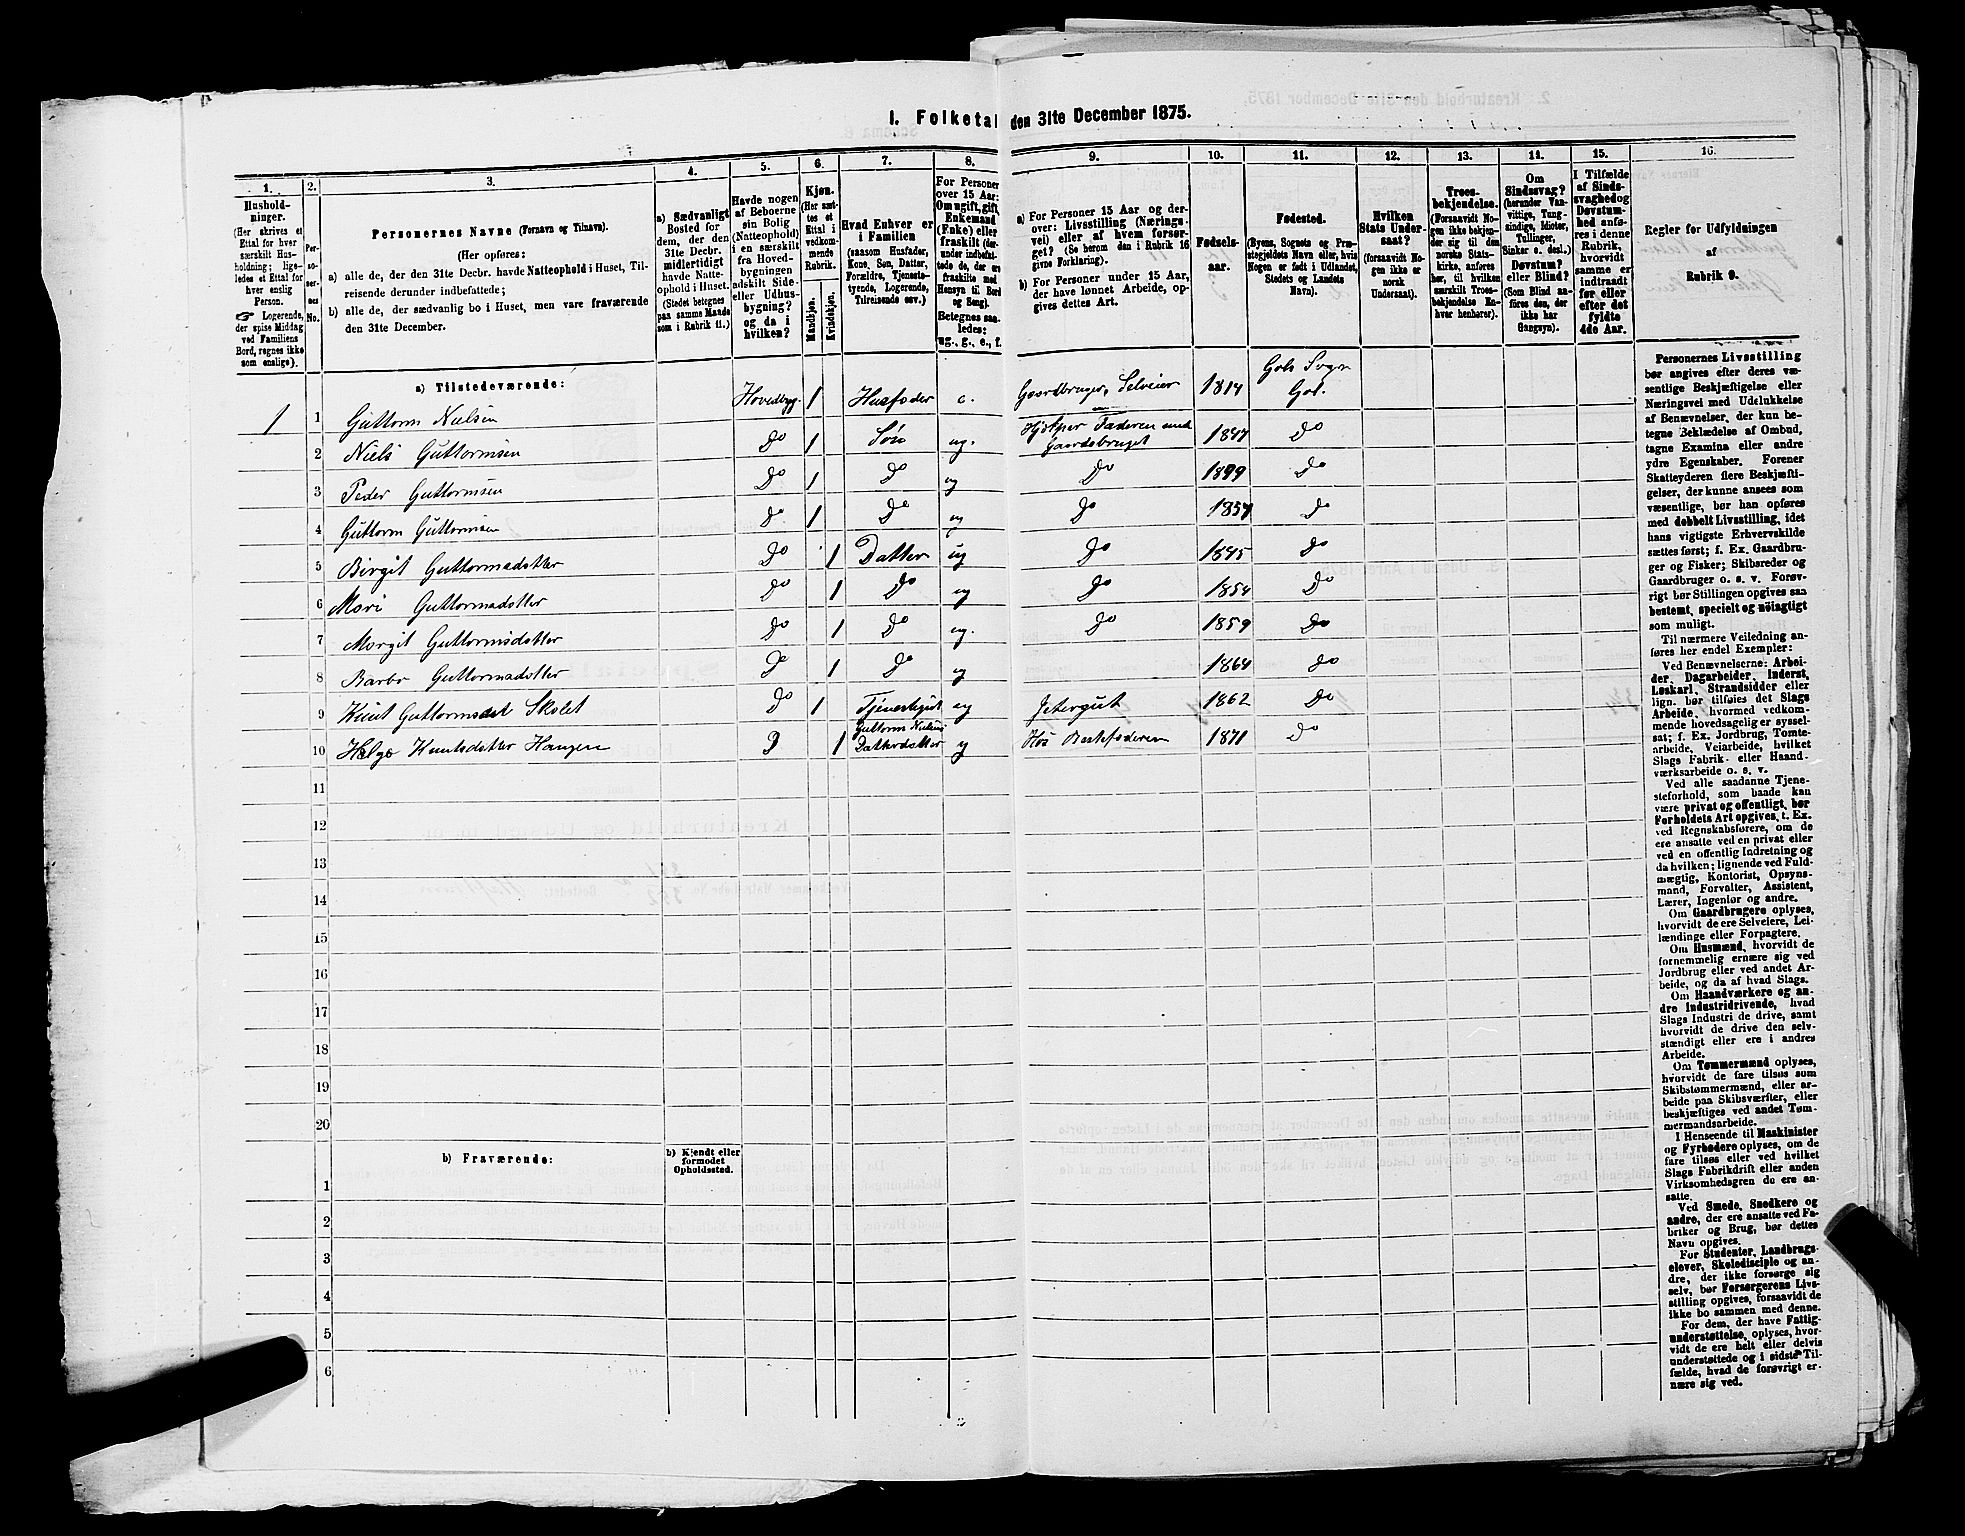 I. Folketal den 31te December 1875.
1.
Hushold-
ninger.
(Her skrives et
Ettal for hver
særskilt Hus-
holdning; lige-
ledes et Ettal for
hver enslig
Person.
☞ Logerende,
der spise Middag
ved Familiens
Bord, regnes ikke
som enslige).
2.
Per-
so-
ner-
nes
No.
3.
Personernes Navne (Fornavn og Tilnavn).
(Her opføres:
a) alle de, der den 31te Decbr. havde Natteophold i Huset, Til-
reisende derunder indbefattede;
b) alle de, der sædvanlig bo i Huset, men vare fraværende
den 31te December.
4.
a) Sædvanligt
Bosted for
dem, der den
31te Decbr.
midlertidigt
havde Natte-
ophold i Huset.
(Stedet betegnes
paa samme Maade
som i Rubrik 11.)
5.
Havde nogen
af Beboerne
sin Bolig
(Natteophold)
i en særskilt
fra Hoved-
bygningen
adskilt Side-
eller Udhus-
bygning?
og da i
hvilken?
6.
Kjøn.
(Her sæt-
tes et
Ettal i
vedkom-
mende
Rubrik.
Mandkjøn.
Kvindekjøn.
7.
Hvad Enhver er
i Familien
(saasom Husfader,
Kone, Søn, Datter,
Forældre, Tjeneste-
tyende, Logerende,
Tilreisende osv.)
8.
For Personer
over 15 Aar:
Om ugift, gift,
Enkemand
(Enke) eller
fraskilt
Betegnes saa-
ledes:
ug., g., e., f.
9.
a) For Personer 15 Aar og der-
over: Livsstilling (Nærings-
vei) eller af hvem forsør-
get? (Se herom den i Rubrik 16
givne Forklaring).
b) For Personer under 15 Aar,
der have lønnet Arbeide, op-
gives dettes Art.
10.
Fødsels-
aar.
11.
Fødested.
(Byens, Sognets og Præ-
stegjeldets Navn eller, hvis
Nogen er født i Udlandet,
Stedets og Landets
Navn).
12.
Hvilken
Stats Under-
saat?
(forsaavidt No-
gen ikke er
norsk
Undersaat).
13.
Troes-
bekjendelse.
(Forsaavidt No-
gen ikke bekjen-
der sig til den
norske Stats-
kirke, anføres
her, til hvilken
særskilt Troes-
bekjendelse En-
hver henhører).
14.
Om
Sindssvag?
(herunder Van-
vittige, Tung-
sindige, Idioter,
Tullinger,
Sinker o. desl.)
Døvstum?
eller Blind?
(Som Blind an-
føres den, der
ikke har
Gangsyn).
15.
I Tilfælde
af Sinds-
svaghed og
Døvstum-
hed anfø-
res i denne
Rubrik,
hvorvidt
samme er
indtraadt
før eller
efter det
fyldte
4de Aar.
16.
Regler for Udfyldningen
af
Rubrik 9.
a) Tilstedeværende:
1 1 Guttorm Nielsen Hovedbyg. 1 Husfader e. Gaardbruger, Selveier 1814 Gols Sogn Gol.
2 Niels Guttormsen Do 1 Søn ug. Hjelper Faderen med Gaardsbruget 1847 Do
3 Peder Guttormsen Do 1 Do ug Do 1849 Do
4 Guttorm Guttormsen Do 1 Do ug Do 1857 Do
5 Birgit Guttormsdatter Do 1 Datter ug Do 1845 Do
6 Mari Guttormsdatter Do 1 Do ug Do 1854 Do
7 Margit Guttormsdatter Do 1 Do ug. Do 1859 Do
8 Barbo Guttormsdatter Do 1 Do ug 1864 Do
9 Knut Guttormsen Skolet Do 1 Tjenestegut ug Jetergut 1862 Do
10 Helge Knutsdatter Haugen D 1 Guttorm Nielsens Datterdatter ug Hos Bestefaderen 1871 Do
11
12
13
14
15
16
17
18
19
20
b) Fraværende:
b) Kjendt eller
formodet
Opholdssted.
1
2
3
4
5
6
Personernes Livsstilling
bør angives efter deres væ-
sentlige Beskjæftigelse eller
Næringsvei med Udelukkelse
af Benævnelser, der kun be-
tegne Beklædelse af Ombud,
tagne Examina eller andre
ydre Egenskaber. Forener
Skatteyderen flere Beskjæfti-
gelser, der kunne ansees som
væsentlige, bør han opføres
med dobbelt Livsstilling, idet
hans vigtigste Erhvervskilde
sættes først; f. Ex. Gaardbru-
ger og Fisker; Skibsreder og
Gaardbruger o. s. v. Forøv-
rigt bør Stillingen opgives saa
bestemt, specielt og nøiagtigt
som muligt.
Til nærmere Veiledning an-
føres her endel Exempler:
Ved Benævnelserne: Arbei-
der, Dagarbeider, Inderst,
Løskarl, Strandsidder eller
lign. bør tilføies det Slags
Arbeide, hvormed vedkom-
mende hovedsagelig er syssel-
sat; f. Ex. Jordbrug, Tomte-
arbeide, Veiarbeide, hvilket
Slags Fabrik- eller Haand-
værksarbeide o. s. v.
Ved alle saadanne Tjene-
steforhold, som baade kan
være privat og offentligt, bør
Forholdets Art opgives, t. Ex.
ved Regnskabsførere, om de
ere ansatte ved en privat eller
ved en offentlig Indretning og
da hvilken; lignende ved Fuld-
mægtig, Kontorist, Opsyns-
mand, Forvalter, Assistent,
Lærer, Ingeniør og andre.
Om Gaardbrugere oplyses,
hvorvidt de ere Selveiere, Lei-
lændinge eller Forpagtere.
Om Husmænd, hvorvidt de
fornemmelig ernære sig ved
Jordbrug eller ved andet Ar-
beide, og da af hvad Slags.
Om Haandværkere og an-
dre Industridrivende, hvad
Slags Industri de drive, samt
hvorvidt de drive den selv-
stændigt eller ere i andres
Arbeide.
Om Tømmermænd oplyses,
hvorvidt de fare tilsøs som
Skibstømmermænd, eller ar-
beide paa Skibsværfter, eller
beskjæftiges ved andet Tøm-
mermandsarbeide.
I Henseende til Maskinister
og Fyrbødere oplyses, om de
fare tilsøs eller ved hvilket
Slags Fabrikdrift eller anden
Virksomhedsgren de ere an-
satte.
Ved Smede, Snedkere og
andre, der ere ansatte ved Fa-
briker og Brug, bør dettes
Navn opgives.
For Studenter, Landbrugs-
elever, Skoledisciple og an-
dre, der ikke forsørge sig
selv, bør Forsørgerens Livs-
stilling opgives, forsaavidt de
ikke bo sammen med denne.
For dem, der have Fattig-
understøttelse, oplyses, hvor-
vidt de ere helt eller delvis
understøttede og i sidste Til-
fælde, hvad de forøvrigt er-
nære sig ved.